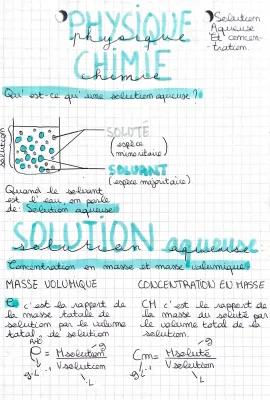 PHYSIQUE
physique
CHIMIE
chimie
Solution
Aqueuse
Et concen-
-tration.
Qu'est-ce qu'une solution aqueuse ?
solution
SOLUTÉ
(espèce
minoritaire)
SOLVANT
(espèce majoritaire)
Quand le solvant
est l'eau, on parle
de: Solution aqueuse
SOLUTION aqueuse
solution
Concentration en masse et masse volumique
MASSE VOLUMIQUE
ρ c'est le rapport de
la masse totale de
solution par le volume
total de solution
ρ = Msolution g
g.L⁻¹ Vsolution
L
CONCENTRATION EN MASSE
CM c'est le rapport de
la masse du soluté par
le volume total de la
solution.
Cm = Msoluté g
g.L⁻¹ Vsolution
L